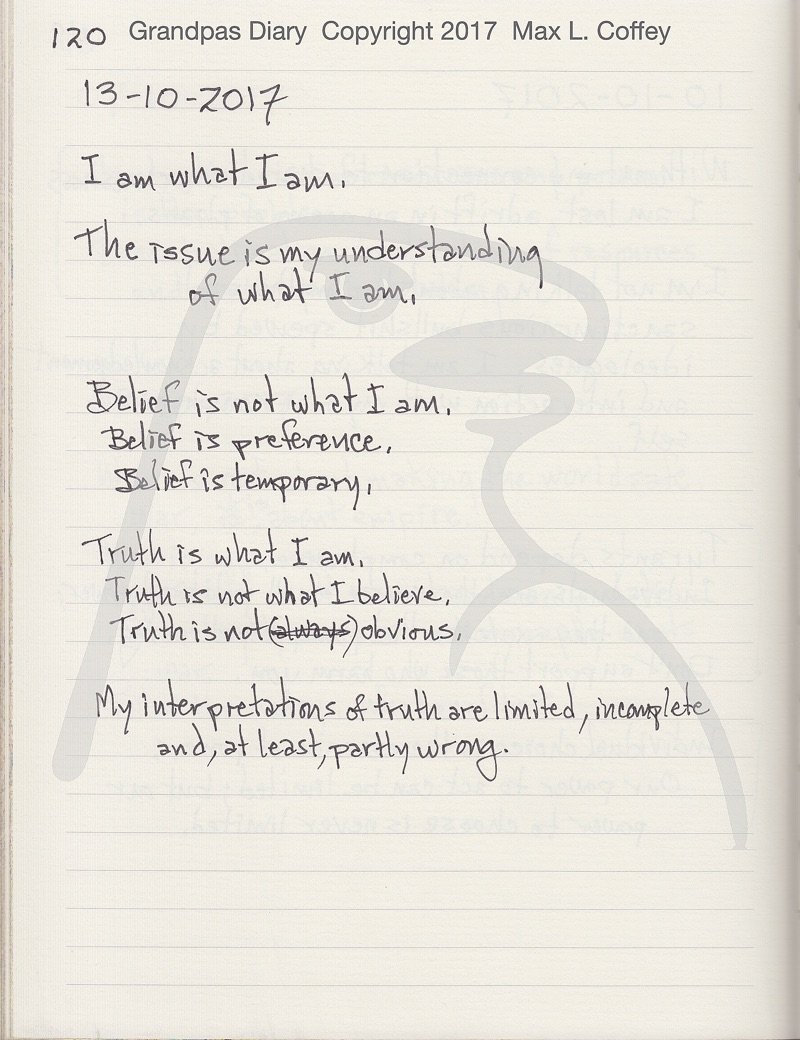 120 Grandpas Diary Copyright 2017 Max L. Coffey
13-10-2017
I am what I am.
The issue is my understanding
of what I am.
Belief is not what I am.
Belief is preference.
Belief is temporary.
Truth is what I am.
Truth is not what I believe.
Truth is not (always) obvious.
My interpretations of truth are limited, incomplete
and, at least, partly wrong.